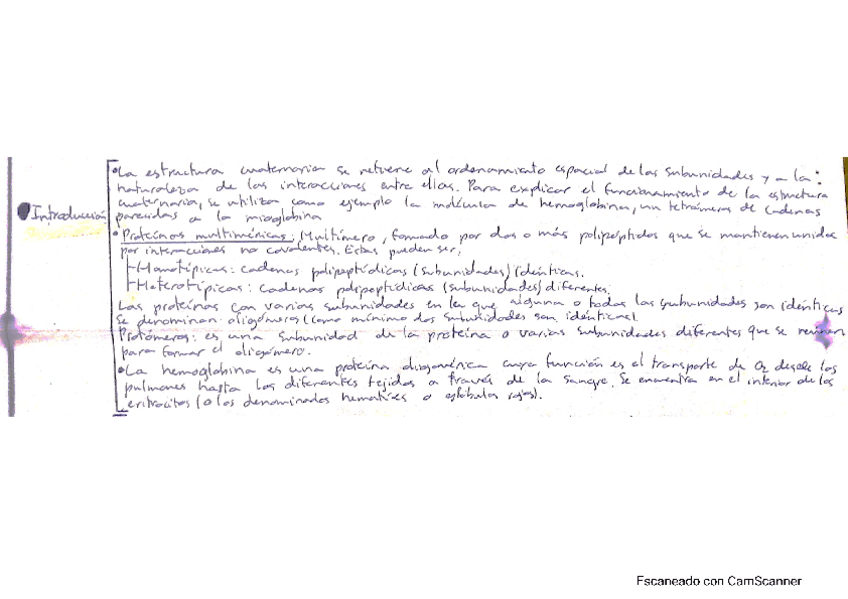 •La estructura cuaternaria se refiere al ordenamiento espacial de las subunidades y a la
naturaleza de las interacciones entre ellas. Para explicar el funcionamiento de la estructura
cuaternaria, se utiliza como ejemplo la molécula de hemoglobina, un tetrámero de cadenas
Introducción
parecidas a la mioglobina
•Proteínas multiméricas: Multímero, formado por dos o más polipéptidos que se mantienen unidos
por interacciones no covalentes. Estas pueden ser,
Homotípicas: cadenas polipeptídicas (subunidades) idénticas.
Heterotípicas: cadenas polipeptídicas (subunidades) diferentes.
Las proteínas con varias subunidades en la que alguna o todas las subunidades son idénticas
se denominan: oligómeros (como mínimo dos subunidades son idénticas).
Protómeros: es una subunidad de la proteína o varias subunidades diferentes que se reúnen
para formar el oligómero.
•La hemoglobina es una proteína oligomérica cuya función es el transporte de O2 desde los
pulmones hasta los diferentes tejidos a través de la sangre. Se encuentra en el interior de los
eritrocitos (o los denominados hematíes o glóbulos rojos).
Escaneado con CamScanner